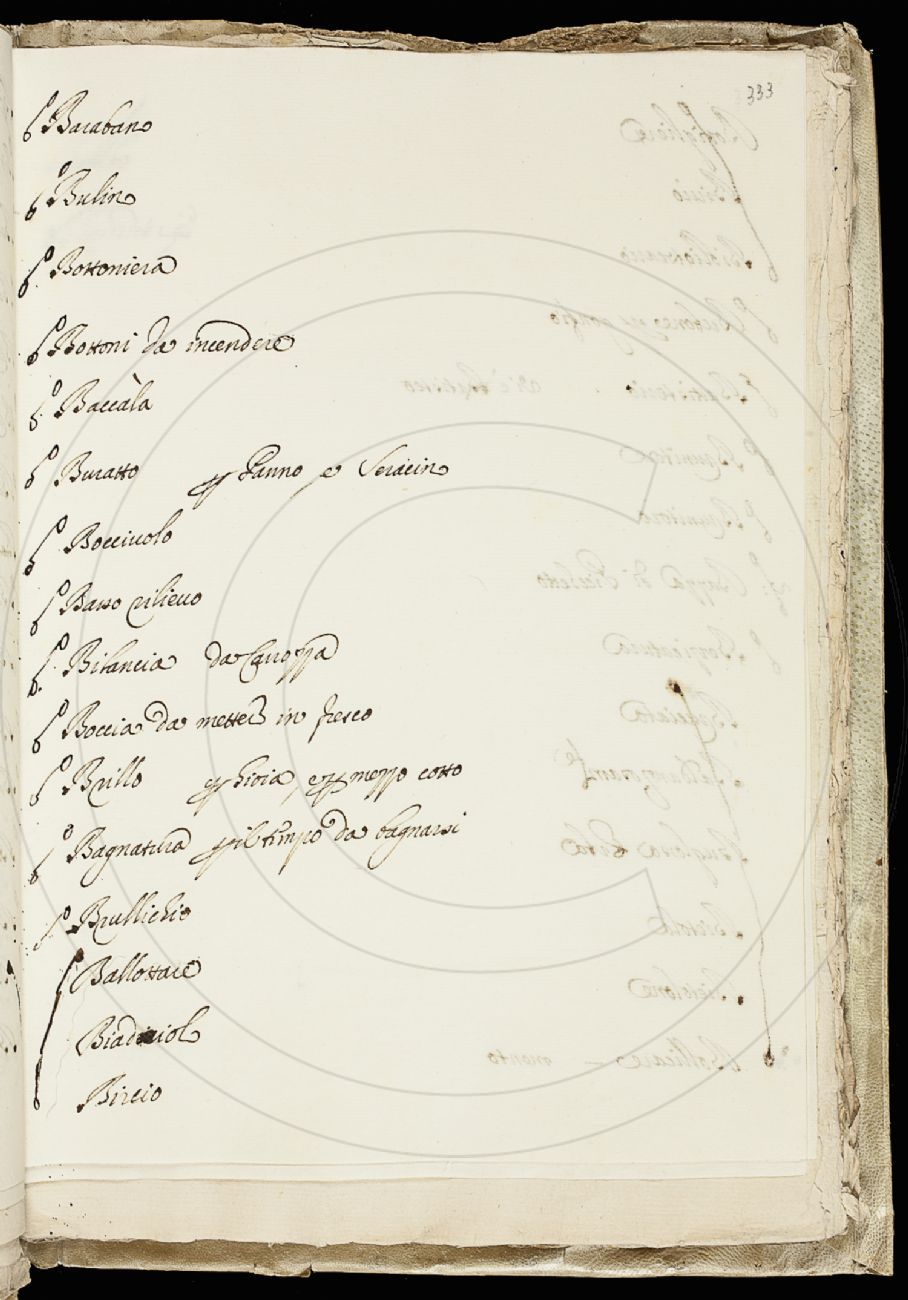 333
Barabano
Bulino
Bottoniera
Bottoni da incendere
Baccàla
Buratto p Panno e Seracino
Bocciuolo
Basso rilieuo
Bilancia da Carozza
Boccia da metter in fresco
Brillo p Gioia, e p mezzo cotto
Bagnatura p il tempo da bagnarsi
Brullichio
Ballottare
Biadaiolo
Bircio